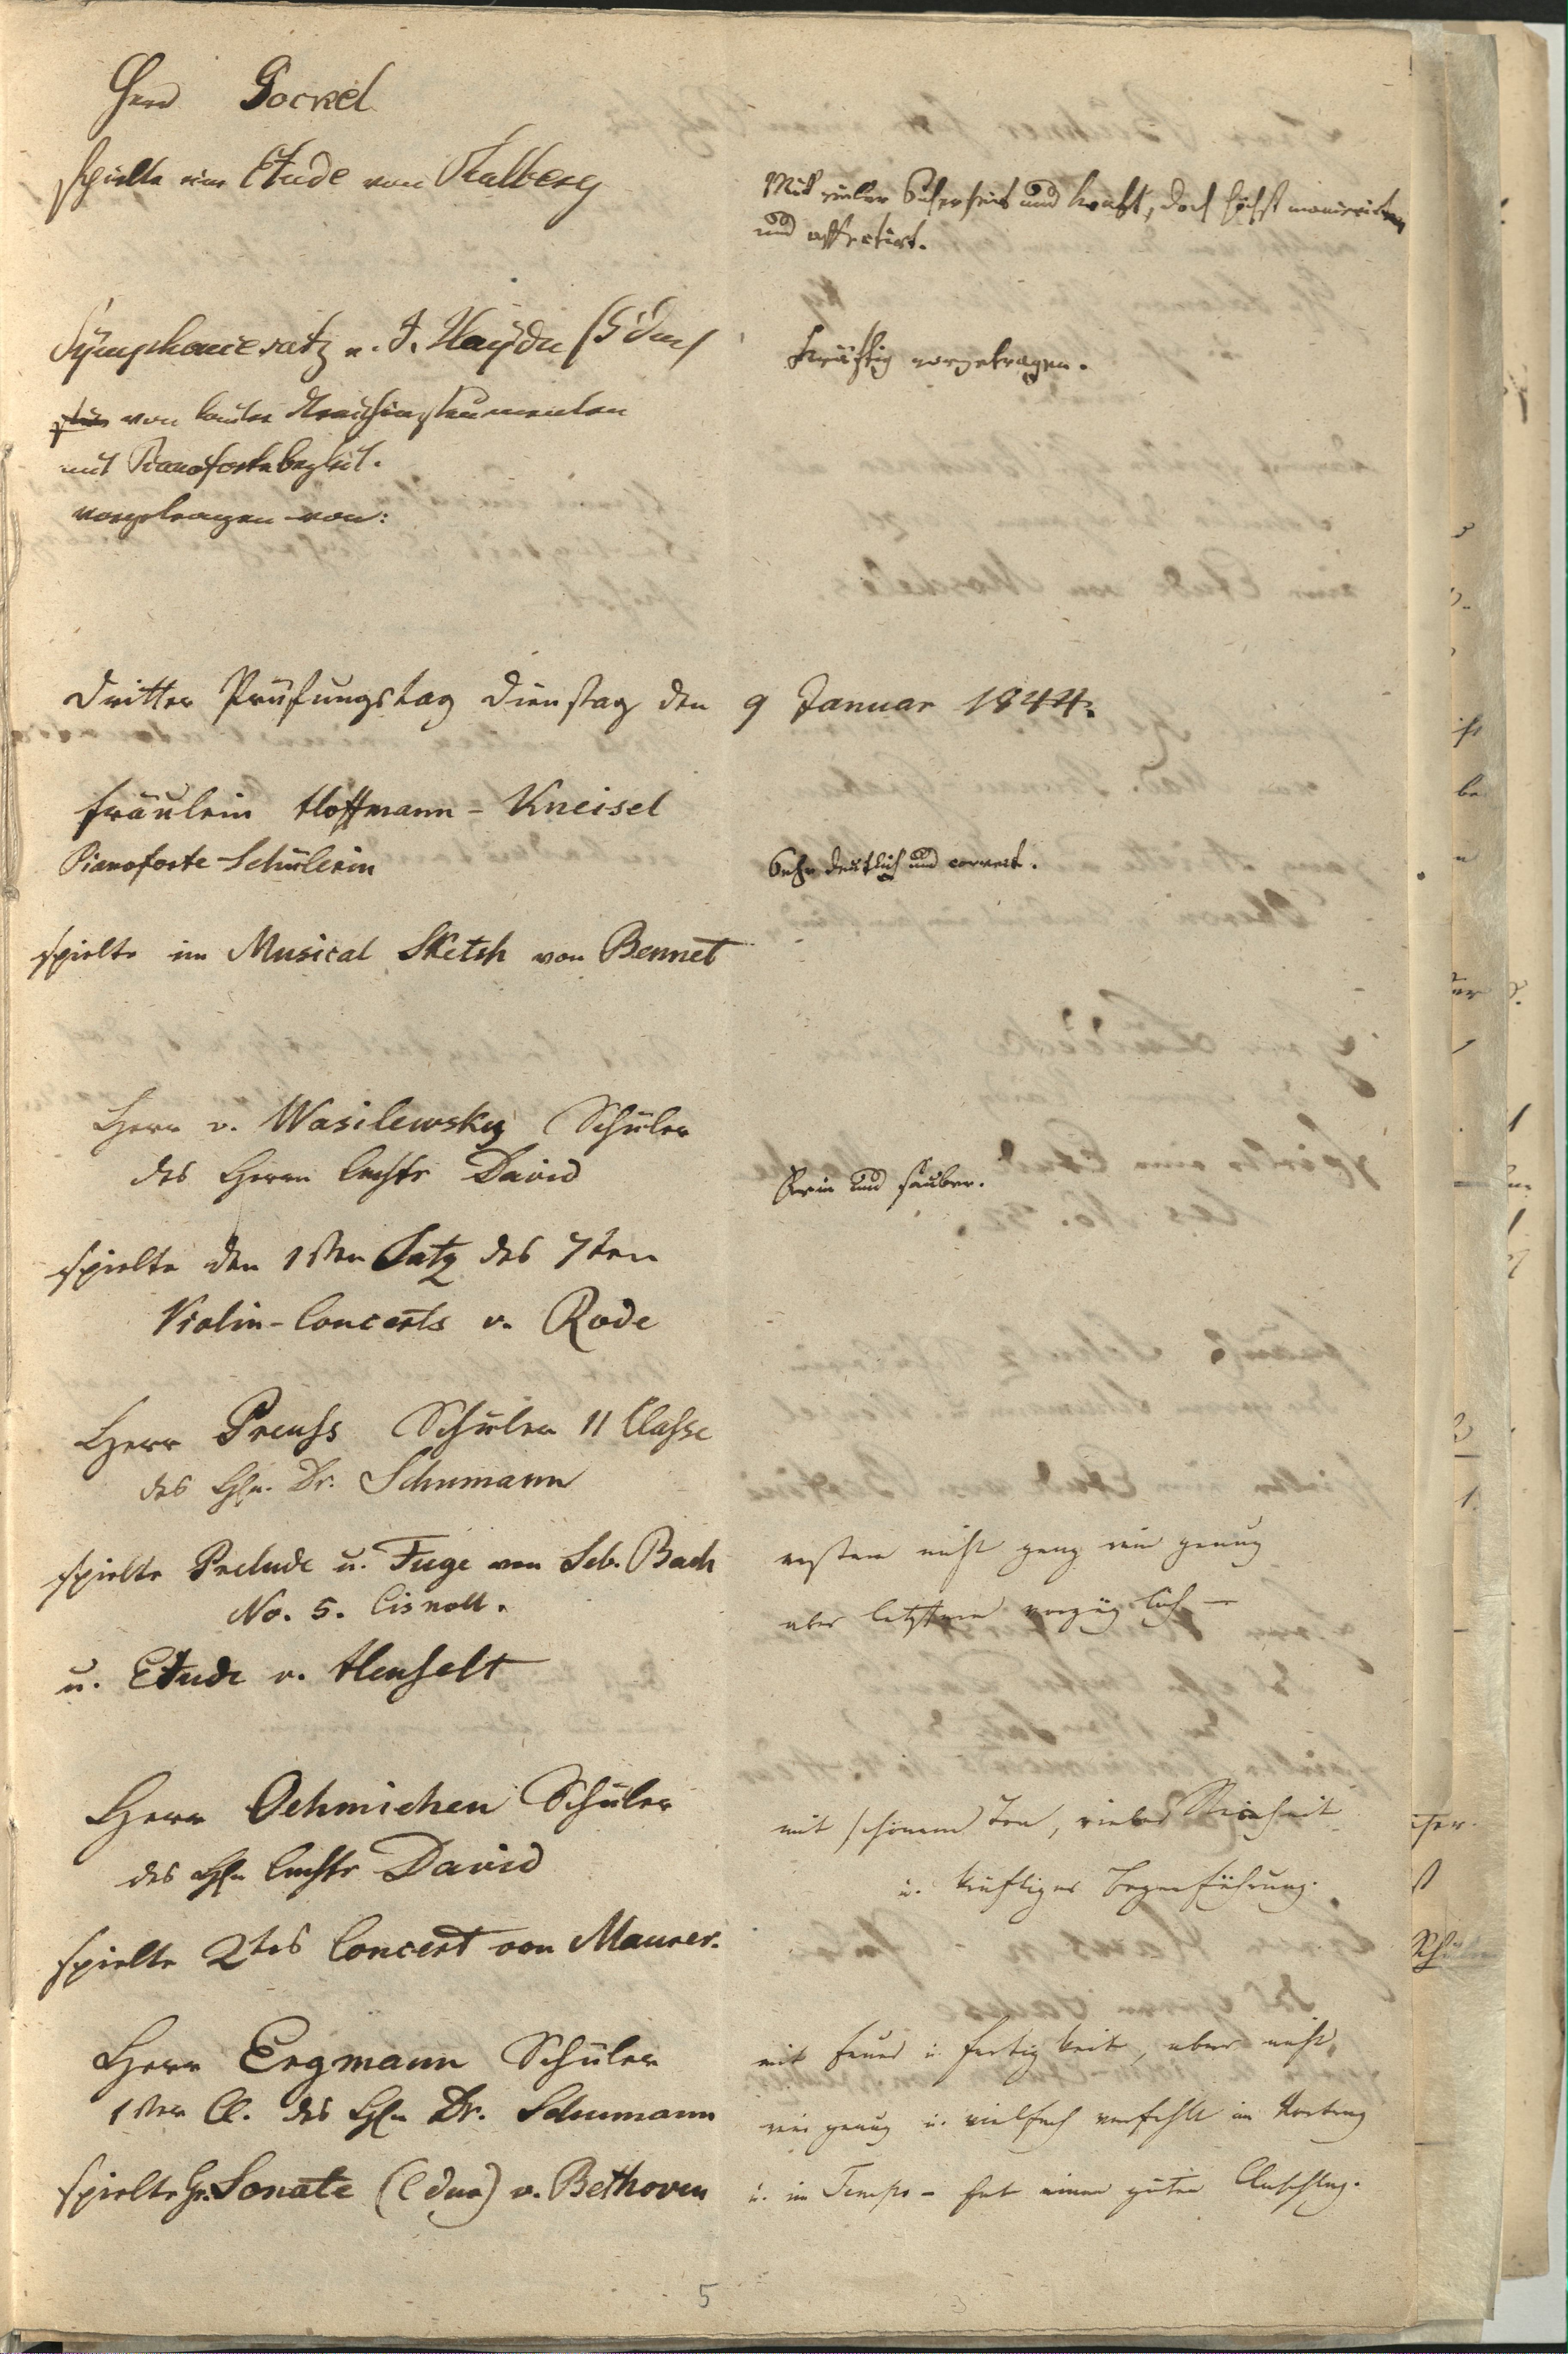 Herr Gockel
spielte eine Etude von Thalberg
Mit vieler Sicherheit und Kraft, doch höchst manierirt
und affectirt.
Symphoniesatz v. J. Haydn (G dur)
kräftig vorgetragen.
von lauter Streichinstrumenten
mit Pianofortebegleit.
vorgetragen von:
Dritter Prüfungstag Dienstag den 9 Januar 1844.
Fräulein Hoffmann-Kneisel
Pianoforte-Schülerin
Sehr deutlich und correct.
spielte im Musical Sketsh von Bennet
Herr v. Wasilewsky Schüler
des Herrn Cmstr David
Rein und sauber.
spielte den 1sten Satz des 7ten
Violin-Concerts v. Rode
Herr Preuss Schüler II Classe
des Hrn. Dr. Schumann
spielte Prelude u. Fuge von Seb. Bach
erstere nicht ganz rein genug
No. 5. Cis moll.
aber letztere vorzüglich —
u. Etude v. Henselt
Herr Oehmichen Schüler
mit schönem Ton, vieler Reinheit
des Hrn Cmstr David
u. kräftiger Bogenführung.
spielte 2tes Concert von Maurer.
Herr Eegmann Schüler
mit Feuer u. Fertigkeit, aber nicht
1ster Cl. des Hrn Dr. Schumann
rein genug u. vielfach verfehlt im Vortrag
spielte Gr. Sonate (C dur) v. Bethoven
u. im Tempo - hat einen guten Anschlag.
5